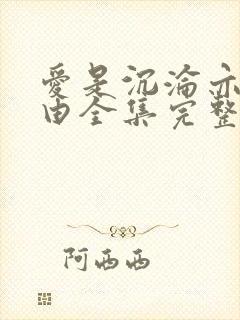 爱是沉沦亦
由全集完整
阿西西